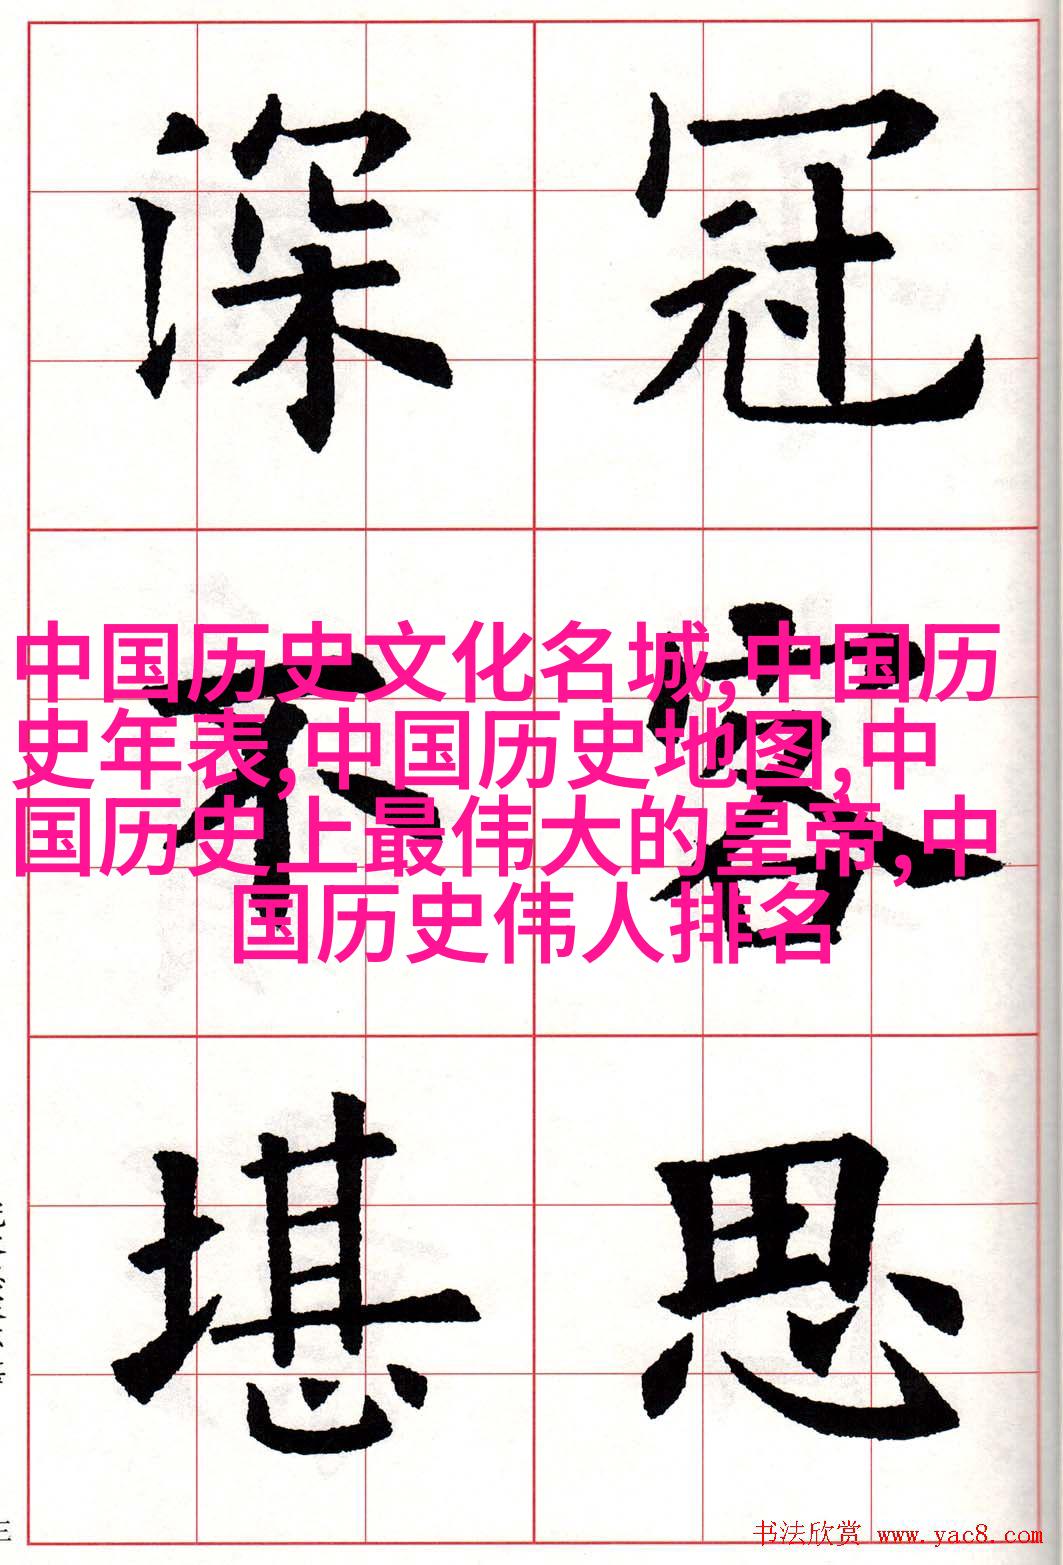 冠容思
深不堪
中国历史文化名城,中国历
史年表,中国历史地图,中
国历史上最伟大的皇帝,中
国历史伟人排名
书法欣赏 www.yac8.com